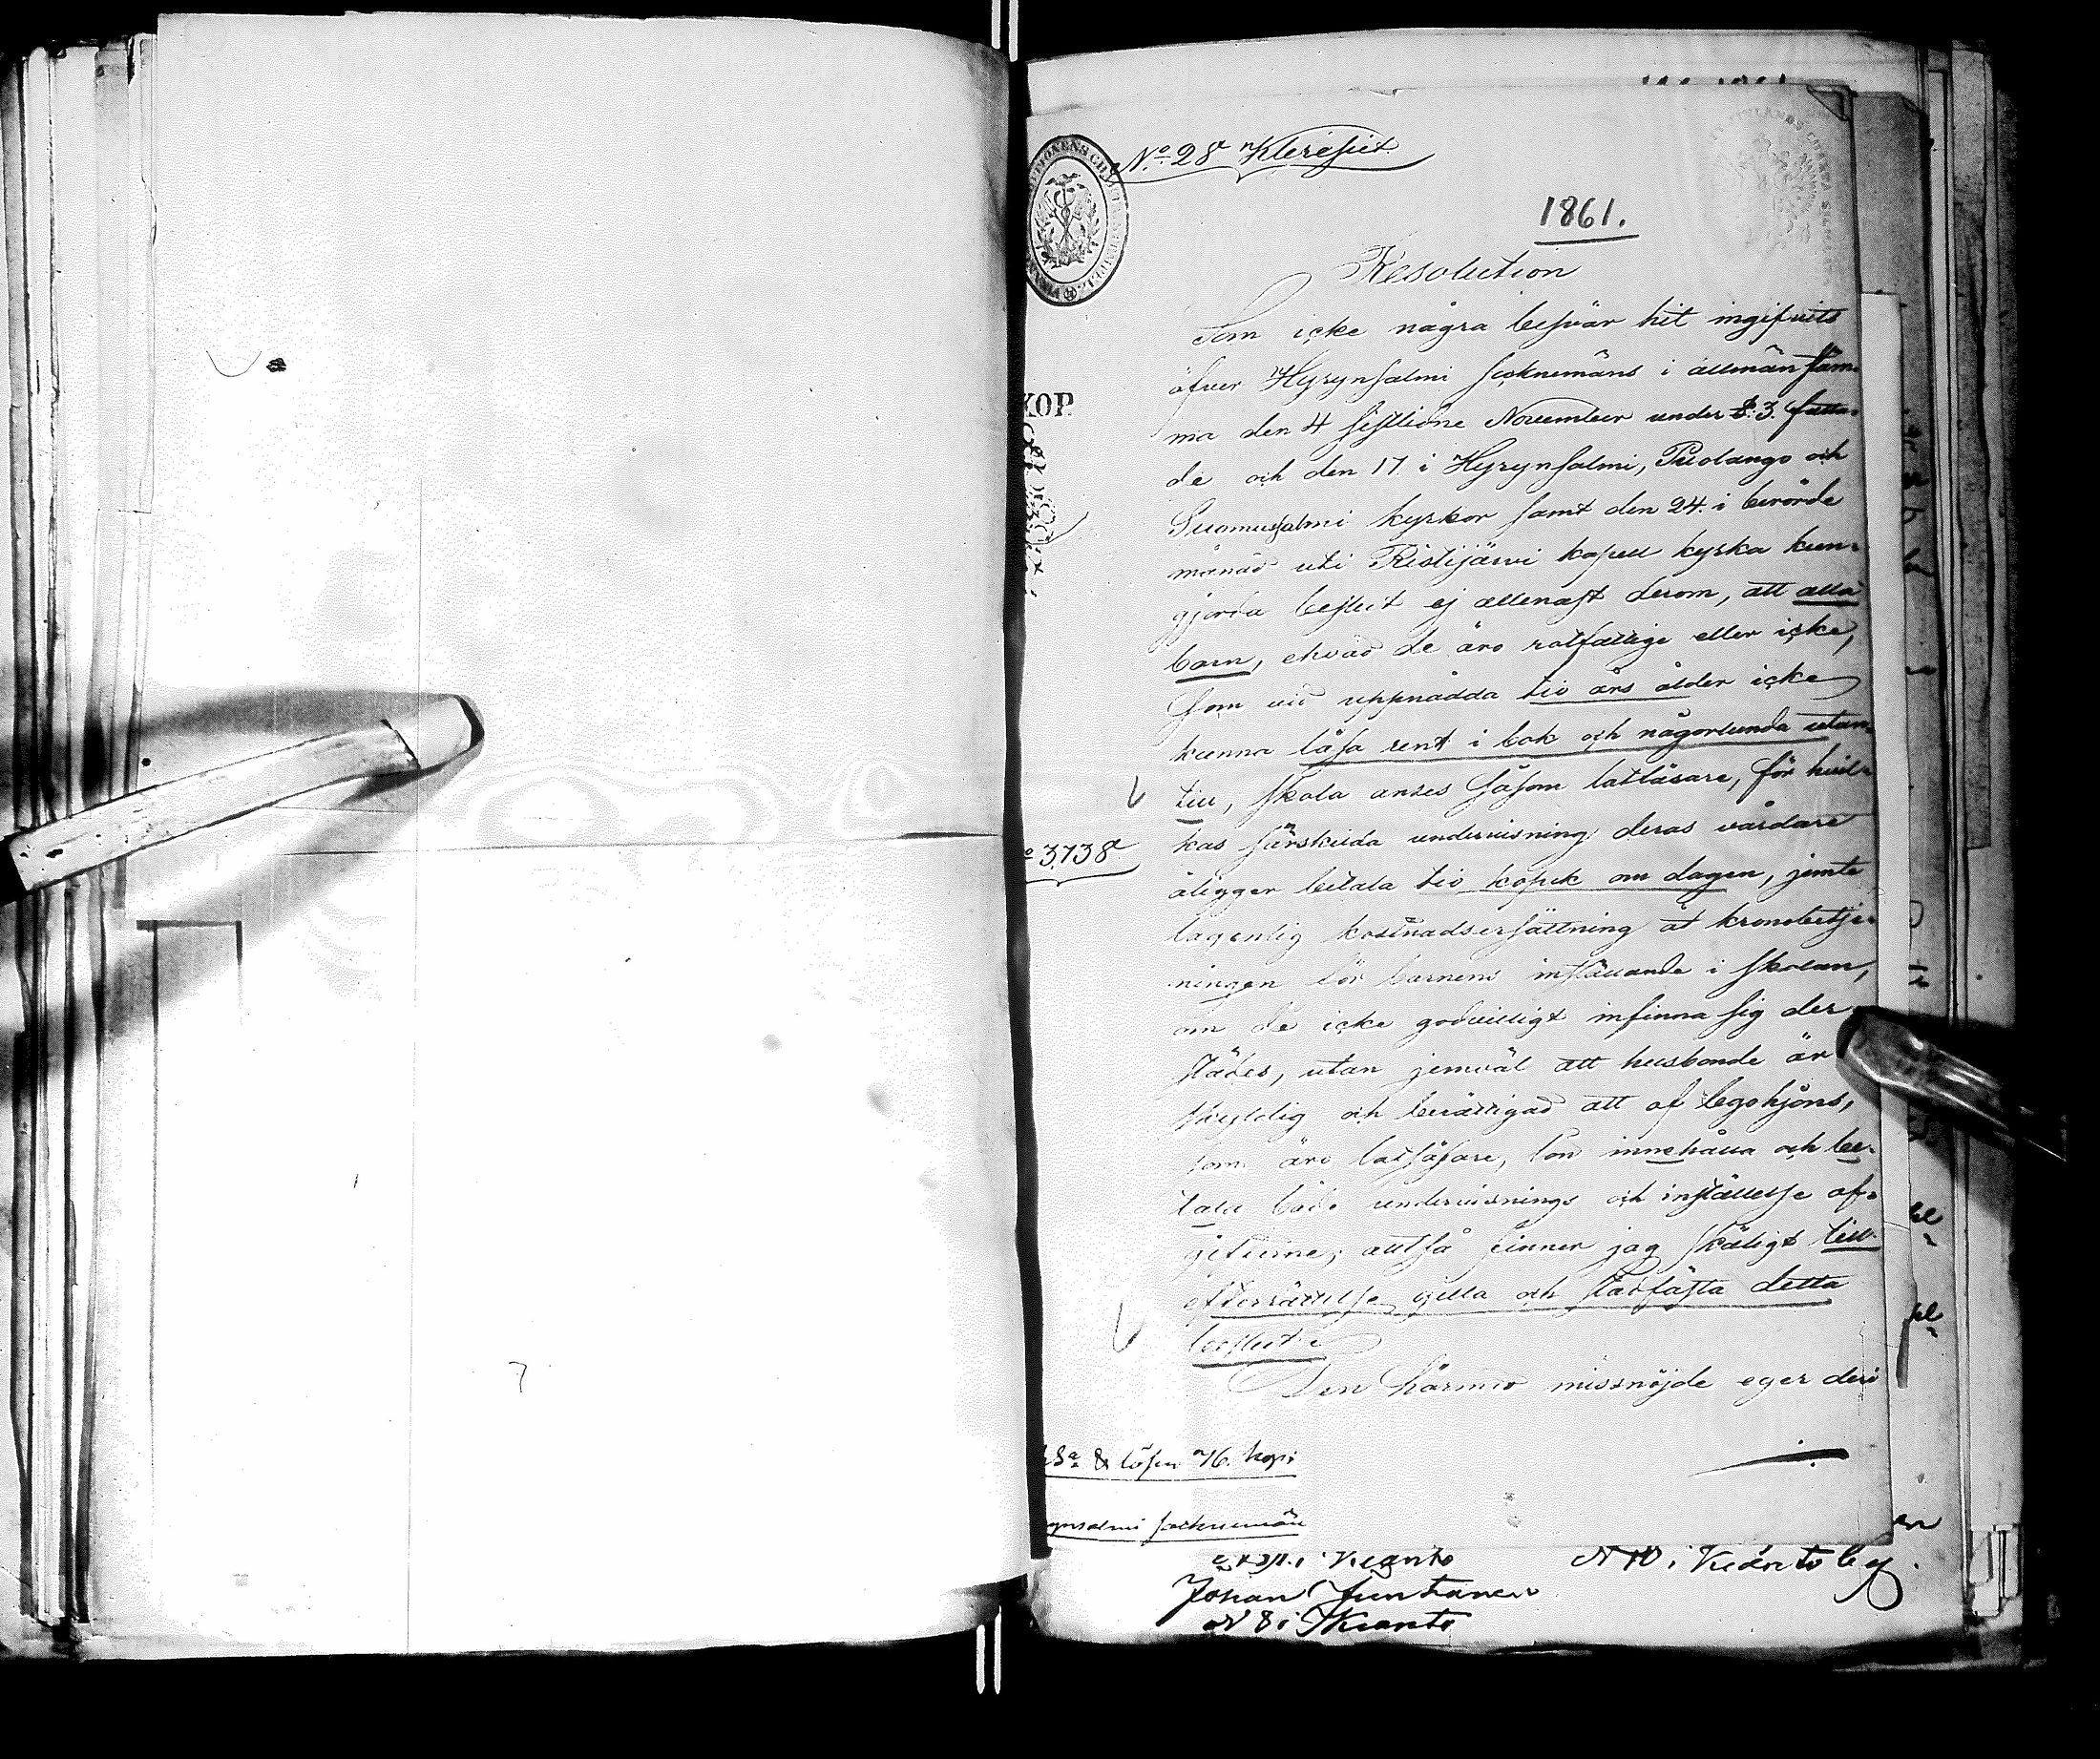 No 28 Kleresiet.
1861.
Resolution
KOP.
Som icke några besvär hit ingifvits
öfver Hyrynsalmi socknemäns i allmän stäm-
ma den 4 sistlidne November under §. 3. fatta-
de och den 17. i Hyrynsalmi, Puolango och
Suomussalmi kyrkor samt den 24. i berörde
månad uti Ristijärvi kapell kyrka kun-
gjorda beslut ej allenast derom, att alla
barn, ehvad de äro rotfattige eller icke,
som vid uppnådda tio års ålder icke
kunna läsa rent i bok och någorlunda utan-
till, skola anses såsom latläsare, för hvil-
kas särskilda undervisning deras vårdare
o 3738
åligger betala tio kopek om dagen, jemte
lagenlig kostnadsersättning åt kronobetje-
ningen för barnens inställande i skolan,
om de icke godvilligt infinna sig der-
städes, utan jemväl att husbonde är
skyldig och berättigad att af legohjons,
som äro latläsare, lön innehålla och be-
tala både undervisnings och inställelse af-
gifterne; alltså finner jag skäligt till
efterrättelse gilla och stadfästa detta
beslut.
Den härmed missnöjde eger deri
& lösen 76. kop:
ynsalmi socknemän
i Kianto
N 10 i Kianto by.
Johan Juntunen
N 8 i Kianto